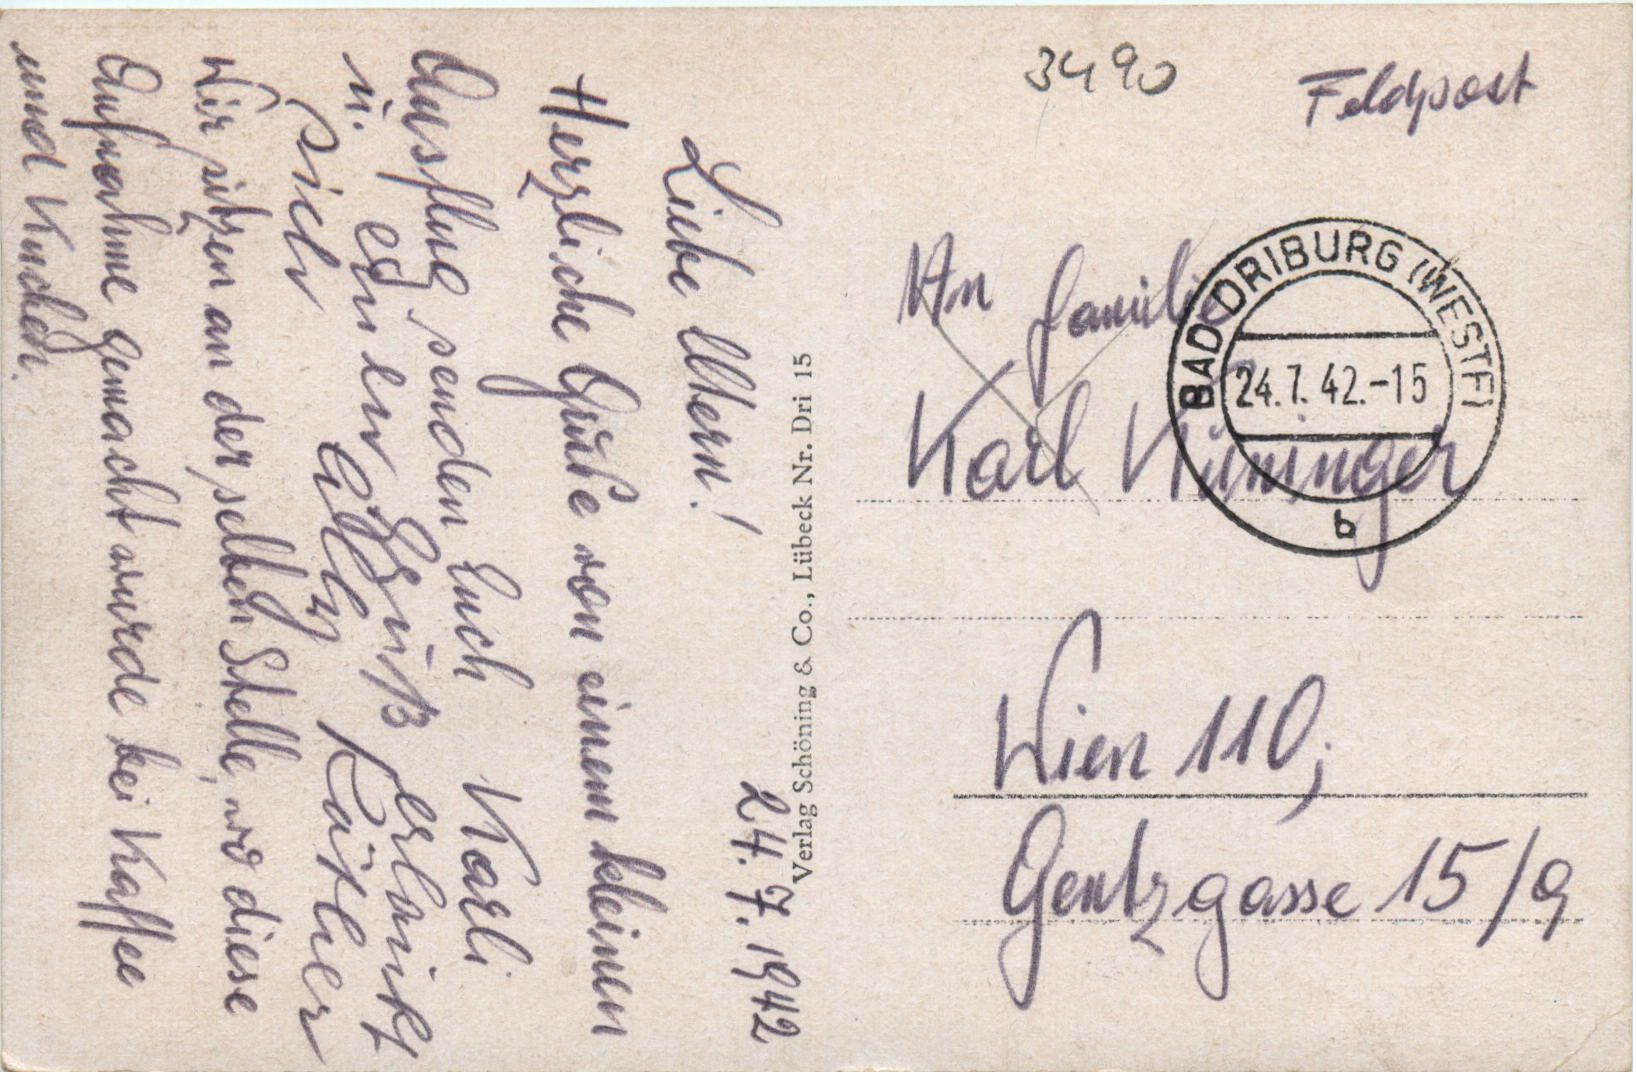 3490
Feldpost
An Familie
Karl Küninger
Wien 110,
Gentzgasse 15/9
BAD DRIBURG (WESTF)
24.7.42.-15
b
Verlag Schöning & Co., Lübeck Nr. Dri 15
24.7.1942
Liebe Eltern!
Herzliche Grüße von einem kleinen
Ausflug senden Euch Karli
u. ein Gruß erlaubt
sich
Wir sitzen an derselben Stelle, wo diese
Aufnahme gemacht wurde bei Kaffee
und Kuchen.